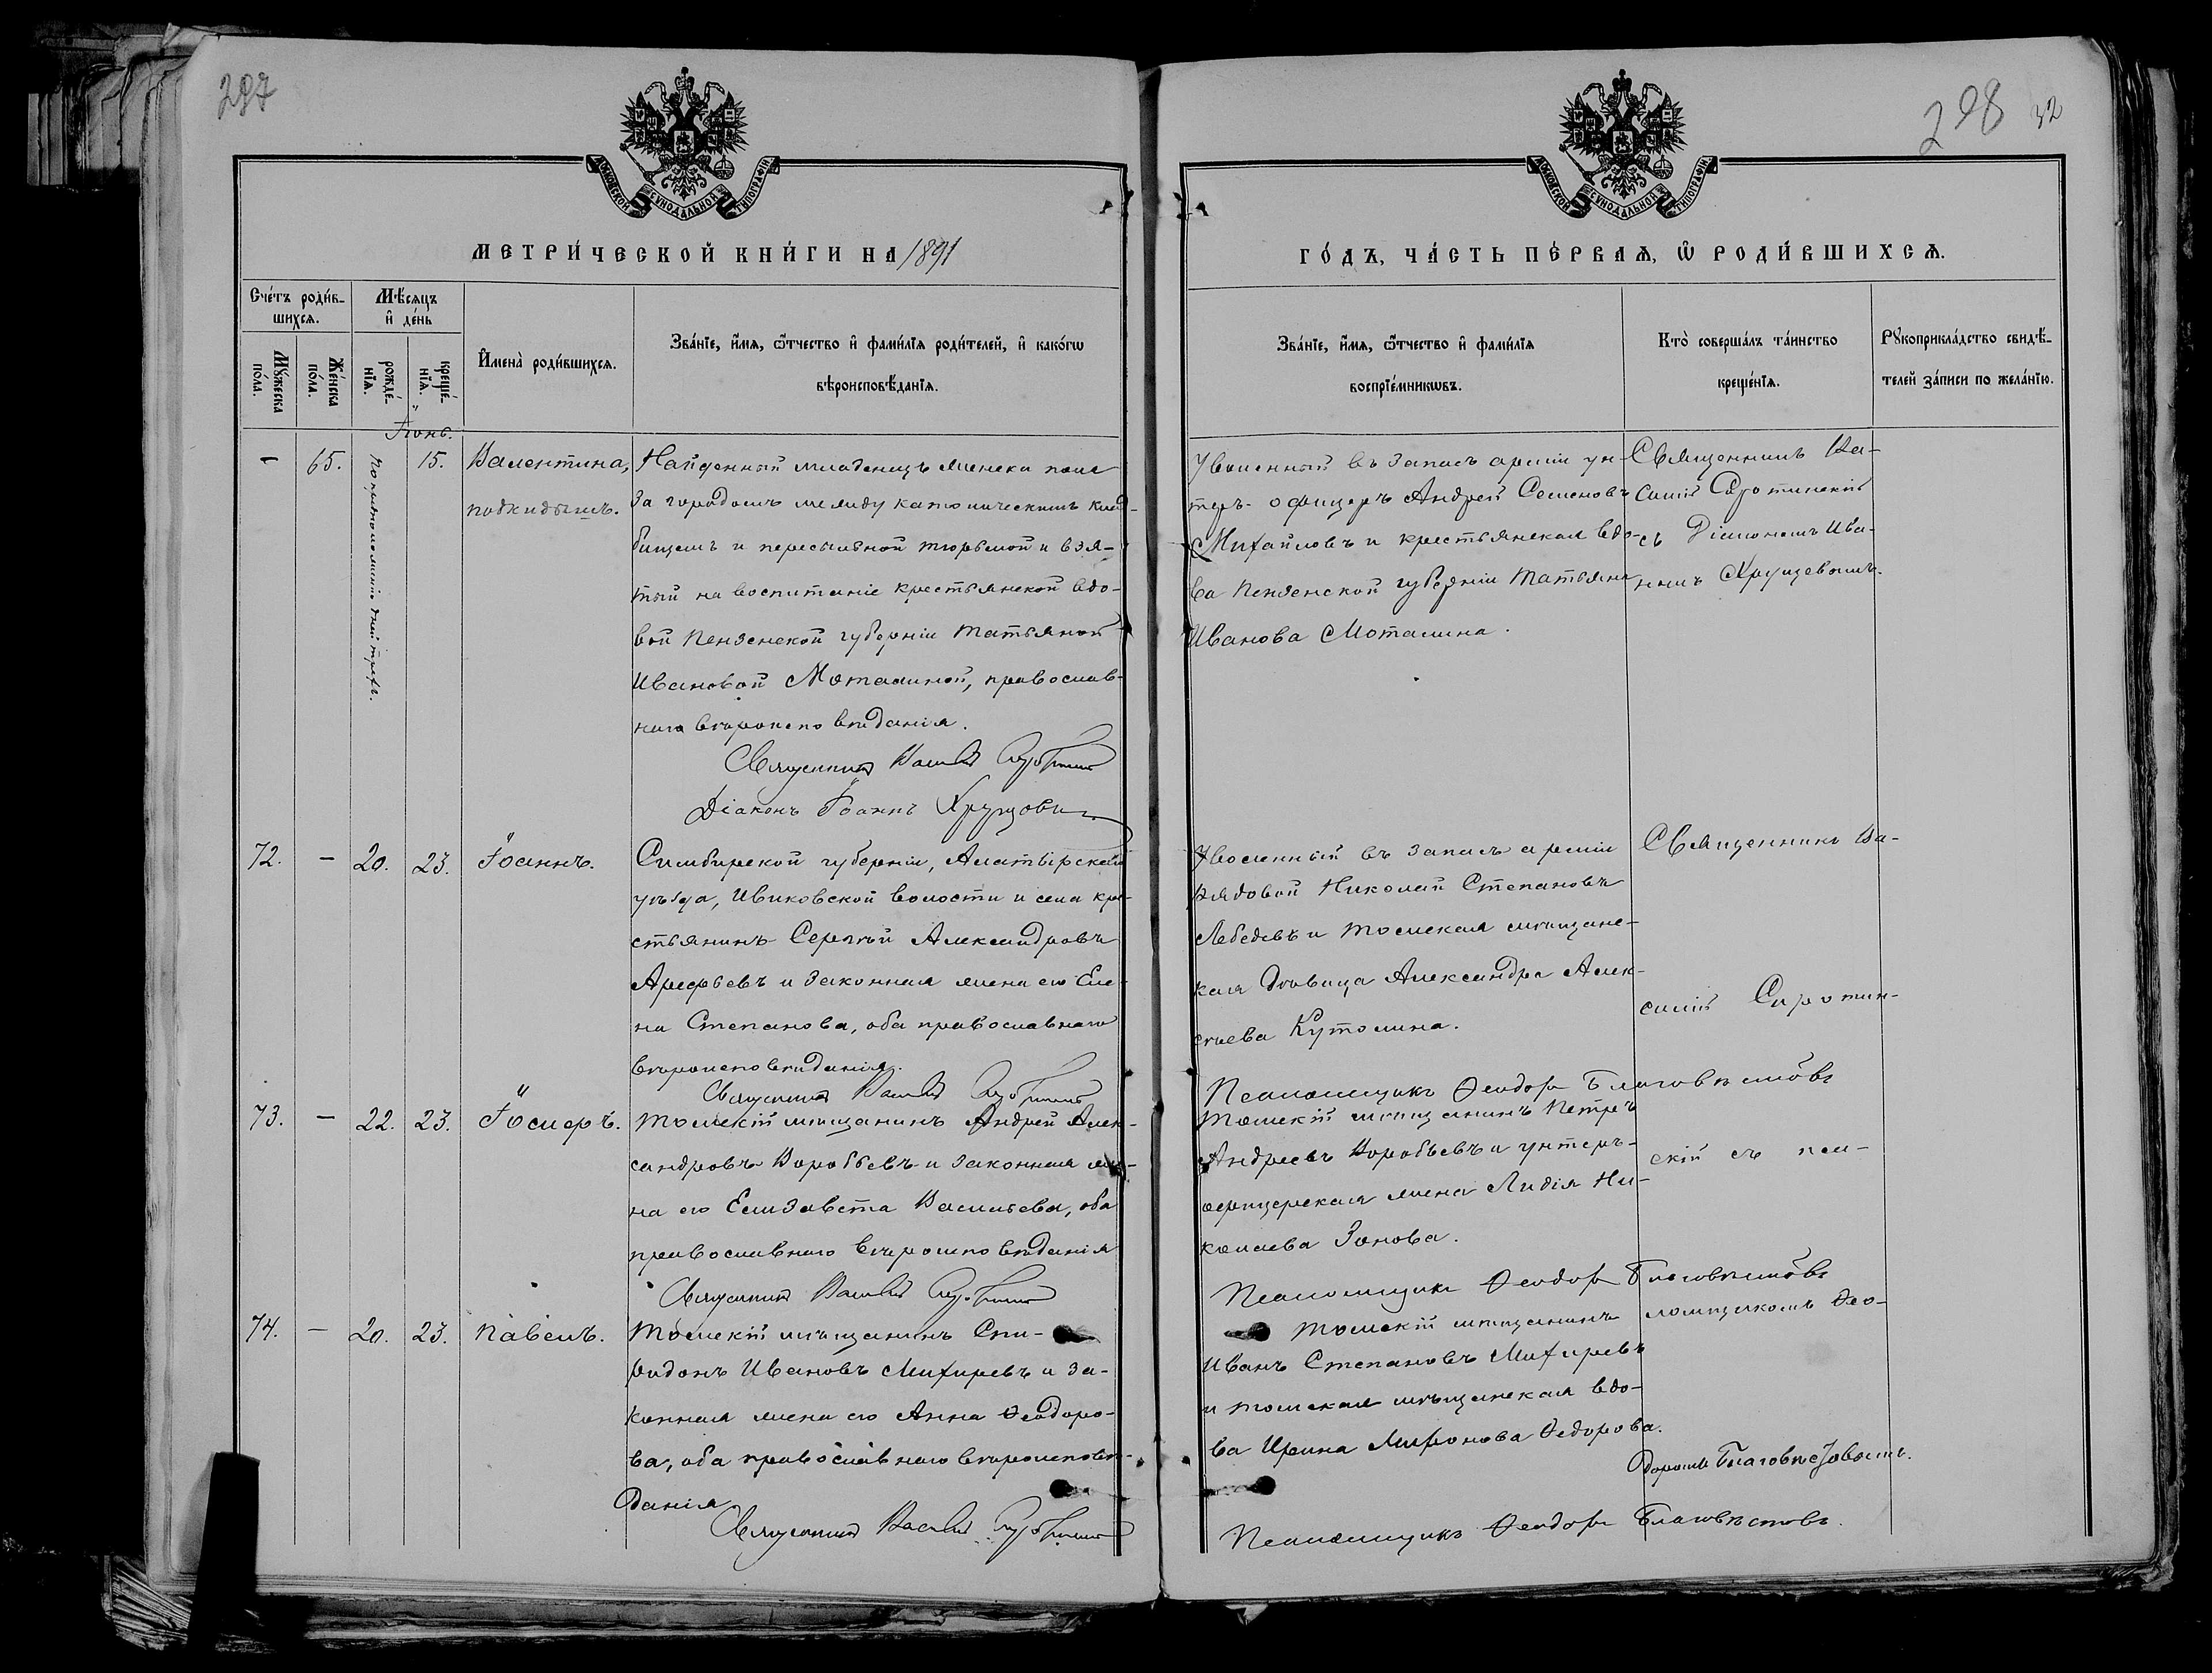 297
МОСКОВСКОЙ СУНОДАЛЬНОЙ ТУПОГРАФІИ
МЕТРИ́ЧЕСКОЙ КНИ́ГИ НА 1891
Сче́тъ роди́в-
шихсѧ.
Мѣ́сѧцъ
и҆ де́нь
Му́жеска
по́ла.
Же́нска
по́ла.
рожде́-
нїѧ.
креще́-
нїѧ.
И҆мена̀ роди́вшихсѧ.
Зва́нїе, и҆́мѧ, ѻ҆́тчество и҆ фами́лїѧ роди́телей, и҆ како́гѡ
вѣроисповѣ́данїѧ.
Іюнь.
65.
15.
Валентина,
подкидышъ.
Найденный младенецъ женска пола
за городомъ между католическимъ клад-
бищемъ и пересыльной тюрьмой и взя-
тый на воспитаніе крестьянской вдо-
вой Пензенской губерніи Татьяной
Ивановой Моталиной, православ-
наго вѣроисповѣданія.
Священникъ Василій Сиротинскій
Діаконъ Іоаннъ Хрущовъ
72.
—
20.
23.
Іоаннъ.
Симбирской губерніи, Алатырскаго
уѣзда, Ивиковской волости и села кре-
стьянинъ Сергѣй Александровъ
Арефьевъ и законная жена его Еле-
на Степанова, оба православнаго
вѣроисповѣданія.
Священникъ Василій Сиротинскій
73.
—
22.
23.
Іосифъ.
Томскій мѣщанинъ Андрей Алек-
сандровъ Воробьевъ и законная же-
на его Елизавета Васильева, оба
православнаго вѣроисповѣданія
Священникъ Василій Сиротинскій
74.
—
20.
23.
Павелъ.
Томскій мѣщанинъ Спи-
ридонъ Ивановъ Михиревъ и за-
конная жена его Анна Ѳеодоро-
ва, оба православнаго вѣроисповѣ-
данія
Священникъ Василій Сиротинскій
298
32
МОСКОВСКОЙ СУНОДАЛЬНОЙ ТУПОГРАФІИ
ГО́ДЪ, ЧА́СТЬ ПЕ́РВАѦ, Ѡ҆ РОДИ́ВШИХСѦ.
Зва́нїе, и҆́мѧ, ѻ҆́тчество и҆ фами́лїѧ
воспрїе́мникѡвъ.
Кто̀ соверша́лъ та́инство
креще́нїѧ.
Рꙋкоприкла́дство свидѣ́-
телей за́писи по жела́нїю.
Уволенный въ запасъ арміи ун-
теръ-офицеръ Андрей Семеновъ
Михайловъ и крестьянская вдо-
ва Пензенской губерніи Татьяна
Иванова Моталина.
Священникъ Ва-
силій Сиротинскій
съ Діакономъ Іоан-
номъ Хрущевымъ.
Уволенный въ запасъ арміи
рядовой Николай Степановъ
Лебедевъ и томская мѣщанс-
кая дѣвица Александра Алек-
сѣева Кутолина.
Псаломщикъ Ѳеодоръ Благовѣстовъ
Томскій мѣщанинъ Петръ
Андреевъ Воробьевъ и унтеръ-
офицерская жена Лидія Ни-
колаева Зонова.
Псаломщикъ Ѳеодоръ Благовѣстовъ
Томскій мѣщанинъ
Иванъ Степановъ Михиревъ
и томская мѣщанская вдо-
ва Ирина Миронова Ѳедорова.
Псаломщикъ Ѳеодоръ Благовѣстовъ.
Священникъ Ва-
силій Сиротин-
скій съ пса-
ломщикомъ Ѳео-
доромъ Благовѣстовымъ.